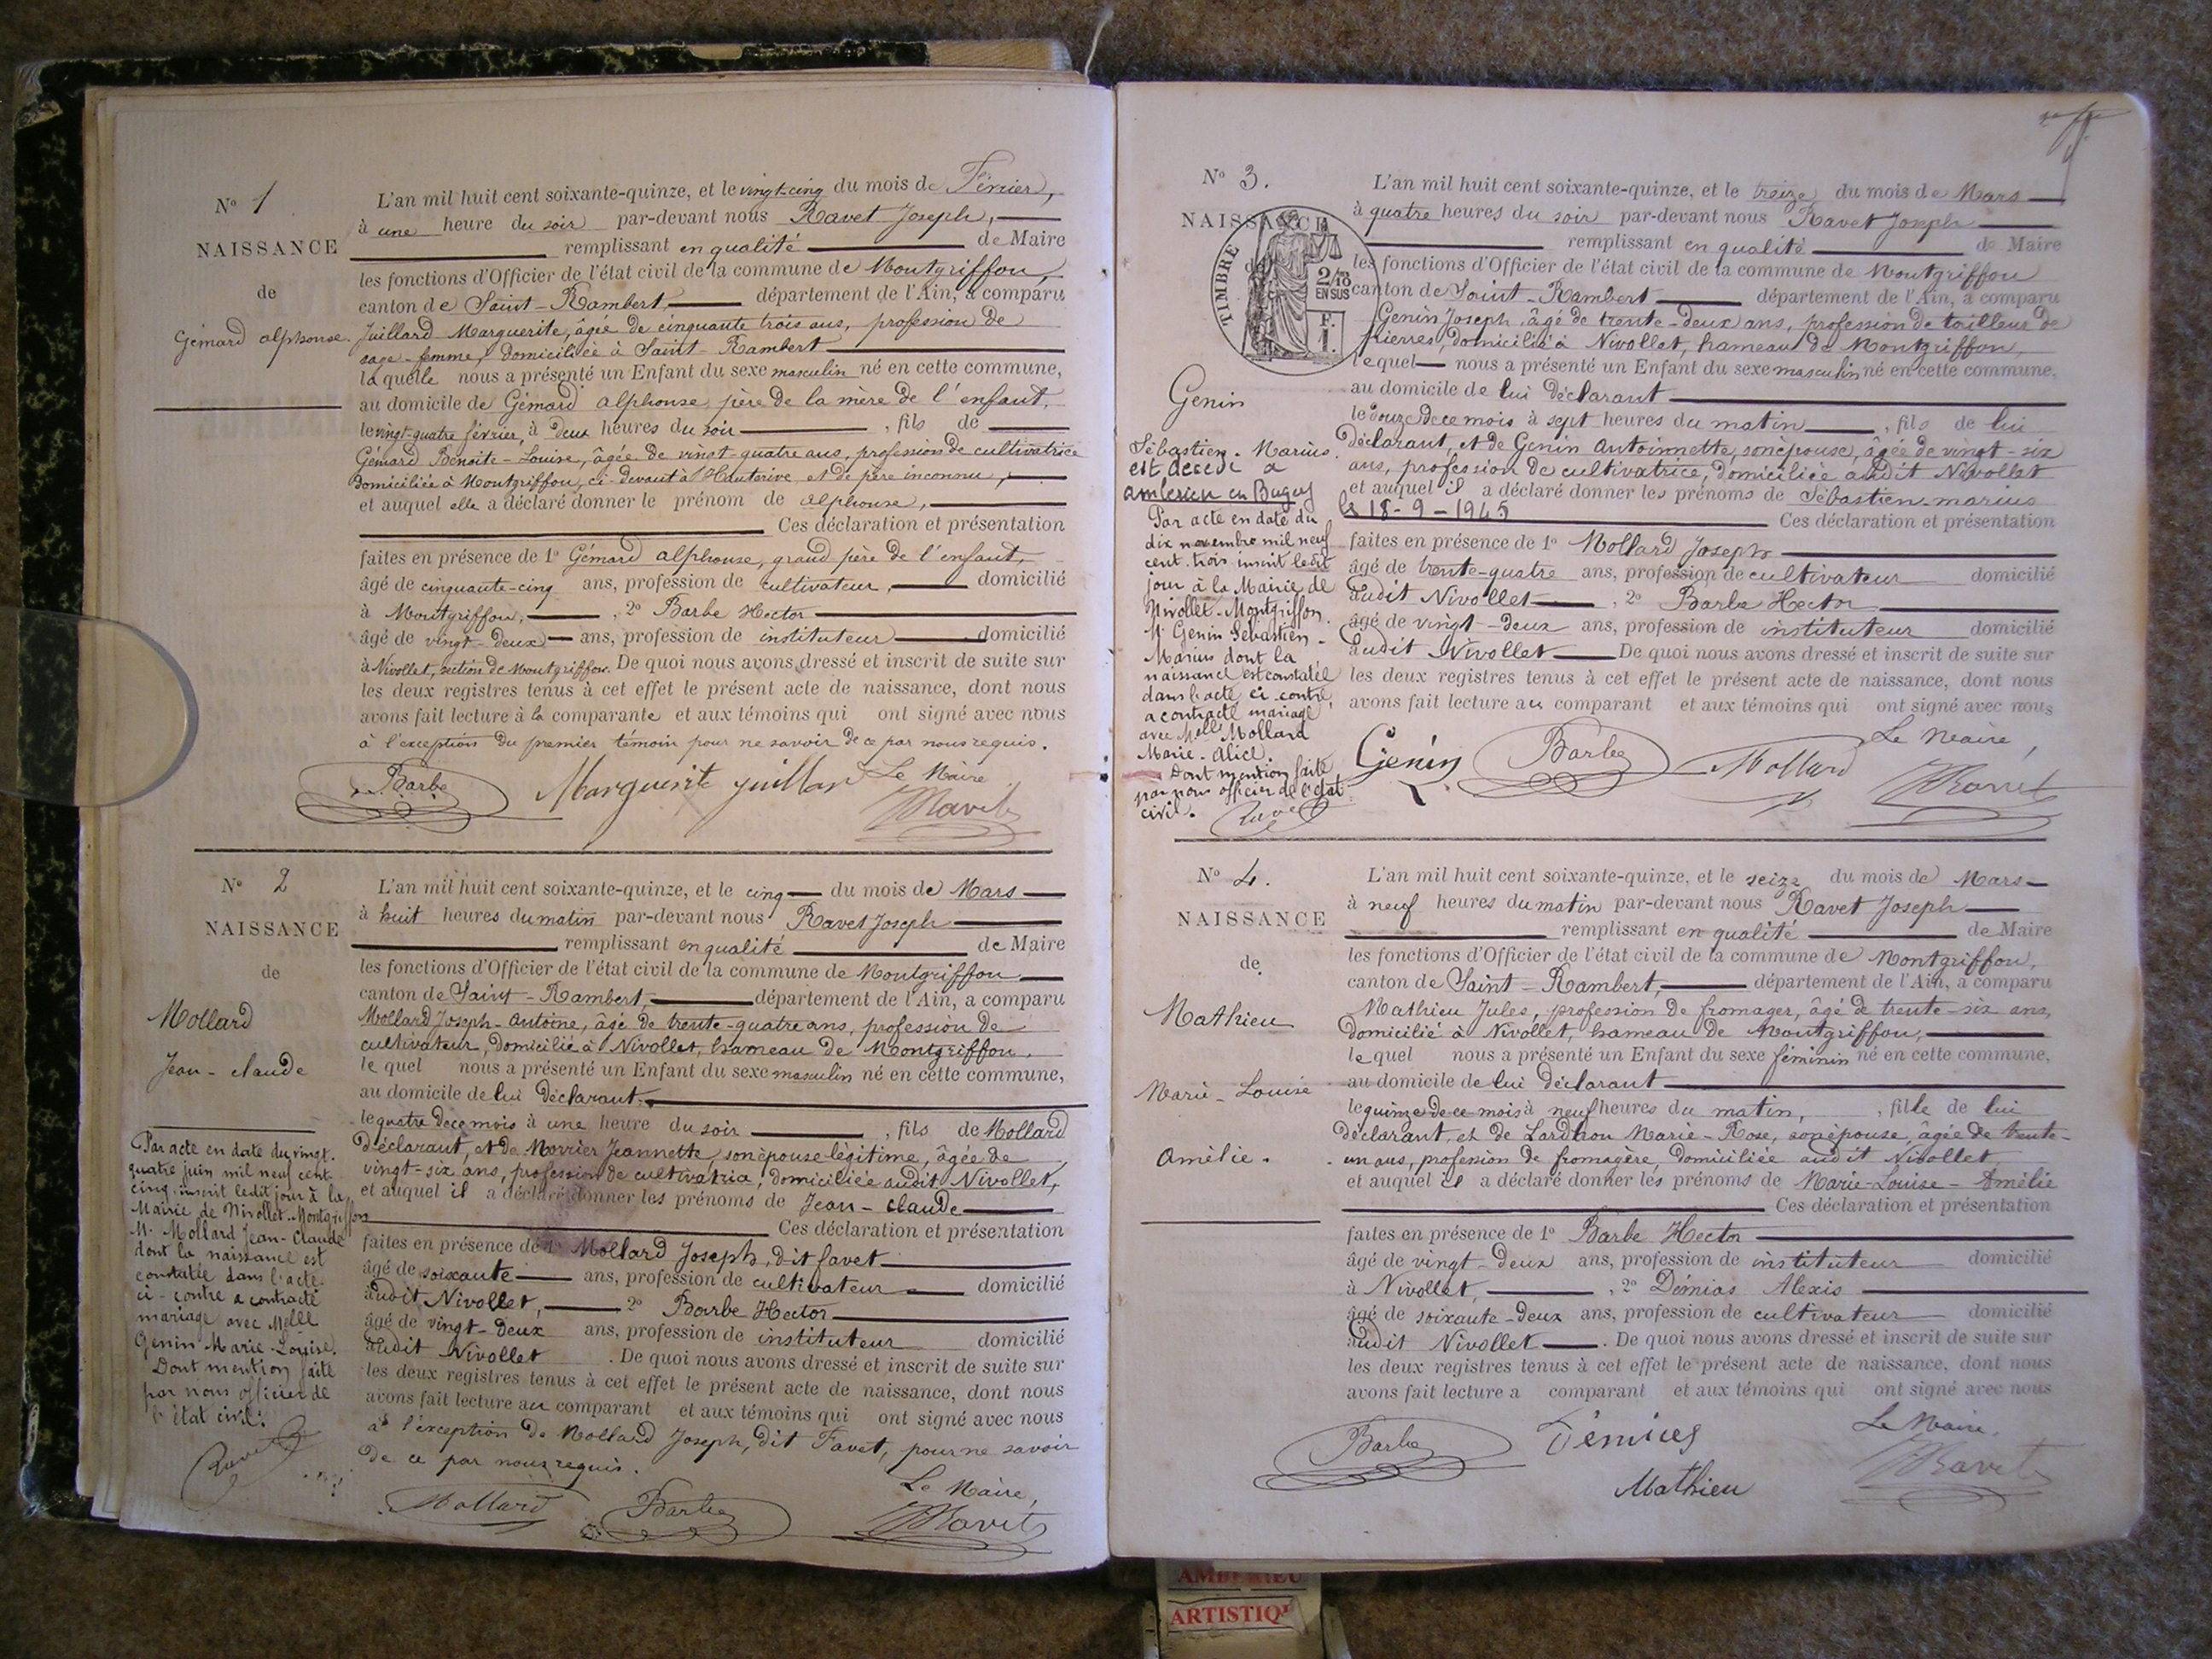 N° 1
NAISSANCE
de
Gémard alphonse.
L'an mil huit cent soixante-quinze, et le vingt-cinq du mois de Février,
à une heure du soir par-devant nous Ravet Joseph,
remplissant en qualité de Maire
les fonctions d'Officier de l'état civil de la commune de Montgriffon,
canton de Saint-Rambert département de l'Ain, a comparu
Juillard Marguerite, âgée de cinquante trois ans, profession de
sage-femme, domiciliée à Saint-Rambert
laquelle nous a présenté un Enfant du sexe masculin né en cette commune,
au domicile de Gémard alphonse, père de la mère de l'enfant,
le vingt-quatre février, à deux heures du soir , fils de
Gémard Benoite-Louise, âgée de vingt-quatre ans, profession de cultivatrice
domiciliée à Montgriffon, ci-devant à Hauterive et de père inconnu,
et auquel elle a déclaré donner le prénom de alphonse,
Ces déclaration et présentation
faites en présence de 1° Gémard alphonse, grand père de l'enfant,
âgé de cinquante-cinq ans, profession de cultivateur, domicilié
à Montgriffon, , 2° Barbe Hector
âgé de vingt-deux ans, profession de instituteur domicilié
à Nivollet, section de Montgriffon. De quoi nous avons dressé et inscrit de suite sur
les deux registres tenus à cet effet le présent acte de naissance, dont nous
avons fait lecture à la comparante et aux témoins qui ont signé avec nous
à l'exception du premier témoin pour ne savoir de ce par nous requis.
Barbe Marguerite Juillard Le Maire
Ravet
N° 2
NAISSANCE
de
Mollard
Jean-claude
Par acte en date du vingt-
quatre juin mil neuf cent
cinq inscrit ledit jour à la
Mairie de Nivollet-Montgriffon
M. Mollard Jean-Claude
dont la naissance est
constatée dans l'acte
ci-contre a contracté
mariage avec Melle
Genin Marie-Louise.
Dont mention faite
par nous officier de
l'état civil.
Ravet
L'an mil huit cent soixante-quinze, et le cinq du mois de Mars
à huit heures du matin par-devant nous Ravet Joseph
remplissant en qualité de Maire
les fonctions d'Officier de l'état civil de la commune de Montgriffon
canton de Saint-Rambert, département de l'Ain, a comparu
Mollard Joseph-Antoine, âgé de trente-quatre ans, profession de
cultivateur, domicilié à Nivollet, hameau de Montgriffon,
lequel nous a présenté un Enfant du sexe masculin né en cette commune,
au domicile de lui déclarant
le quatre de ce mois à une heure du soir , fils de Mollard
déclarant, et de Morrier Jeannette, son épouse légitime, âgée de
vingt-six ans, profession de cultivatrice, domiciliée audit Nivollet,
et auquel il a déclaré donner les prénoms de Jean-claude
Ces déclaration et présentation
faites en présence de 1° Mollard Joseph, dit favet
âgé de soixante ans, profession de cultivateur domicilié
audit Nivollet, 2° Barbe Hector
âgé de vingt-deux ans, profession de instituteur domicilié
audit Nivollet . De quoi nous avons dressé et inscrit de suite sur
les deux registres tenus à cet effet le présent acte de naissance, dont nous
avons fait lecture au comparant et aux témoins qui ont signé avec nous
à l'exception de Mollard Joseph, dit Favet, pour ne savoir
de ce par nous requis.
Le Maire,
Mollard Barbe Ravet
N° 3.
NAISSANCE
de
TIMBRE
2/10
EN SUS
F.
1.
Genin
Sébastien-Marius.
est décédé à
Ambérieu en Bugey
le 18-9-1945
Par acte en date du
dix novembre mil neuf
cent trois inscrit ledit
jour à la Mairie de
Nivollet-Montgriffon
M. Genin Sébastien-
Marius dont la
naissance est constatée
dans l'acte ci-contre,
a contracté mariage
avec Melle Mollard
Marie-Alice.
Dont mention faite
par nous officier de l'état
civil.
Ravet
L'an mil huit cent soixante-quinze, et le treize du mois de Mars
à quatre heures du soir par-devant nous Ravet Joseph
remplissant en qualité de Maire
les fonctions d'Officier de l'état civil de la commune de Montgriffon
canton de Saint-Rambert département de l'Ain, a comparu
Genin Joseph, âgé de trente-deux ans, profession de tailleur de
pierres, domicilié à Nivollet, hameau de Montgriffon,
lequel nous a présenté un Enfant du sexe masculin né en cette commune,
au domicile de lui déclarant
le douze de ce mois à sept heures du matin , fils de lui
déclarant, et de Genin Antoinnette, son épouse, âgée de vingt-six
ans, profession de cultivatrice, domiciliée audit Nivollet
et auquel il a déclaré donner les prénoms de Sébastien-marius
Ces déclaration et présentation
faites en présence de 1° Mollard Joseph
âgé de trente-quatre ans, profession de cultivateur domicilié
audit Nivollet , 2° Barbe Hector
âgé de vingt-deux ans, profession de instituteur domicilié
audit Nivollet De quoi nous avons dressé et inscrit de suite sur
les deux registres tenus à cet effet le présent acte de naissance, dont nous
avons fait lecture au comparant et aux témoins qui ont signé avec nous
Le Maire,
Genin Barbe Mollard Ravet
N° 4.
NAISSANCE
de
Mathieu
Marie-Louise
Amélie.
L'an mil huit cent soixante-quinze, et le seize du mois de Mars
à neuf heures du matin par-devant nous Ravet Joseph
remplissant en qualité de Maire
les fonctions d'Officier de l'état civil de la commune de Montgriffon,
canton de Saint-Rambert, département de l'Ain, a comparu
Mathieu Jules, profession de fromager, âgé de trente-six ans,
domicilié à Nivollet, hameau de Montgriffon,
lequel nous a présenté un Enfant du sexe féminin né en cette commune,
au domicile de lui déclarant
le quinze de ce mois à neuf heures du matin, , fille de lui
déclarant, et de Lardhon Marie-Rose, son épouse, âgée de trente-
un ans, profession de fromagère, domiciliée audit Nivollet
et auquel il a déclaré donner les prénoms de Marie-Louise-Amélie
Ces déclaration et présentation
faites en présence de 1° Barbe Hector
âgé de vingt-deux ans, profession de instituteur domicilié
à Nivollet, , 2° Démias Alexis
âgé de soixante-deux ans, profession de cultivateur domicilié
audit Nivollet . De quoi nous avons dressé et inscrit de suite sur
les deux registres tenus à cet effet le présent acte de naissance, dont nous
avons fait lecture a comparant et aux témoins qui ont signé avec nous
Le Maire,
Barbe Ravet
Mathieu
AMBERIEU
ARTISTIQ